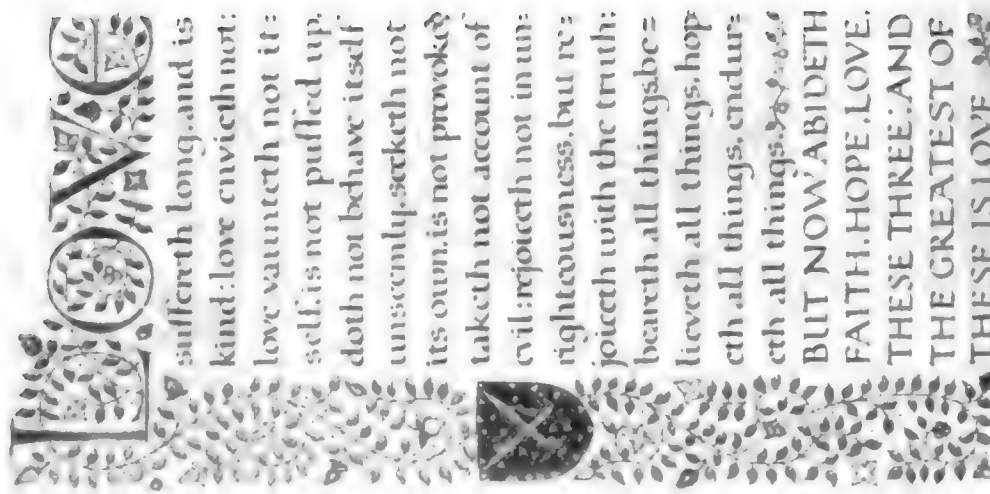 LOVE
suffereth long, and is
kind: love envieth not:
love vaunteth not it=
self: is not puffed up:
doth not behave itself
unseemly, seeketh not
its own, is not provoked,
taketh not account of
evil: rejoiceth not in un=
righteousness, but re=
joiceth with the truth:
beareth all things, be=
lieveth all things, hop
eth all things, endur=
eth all things.
BUT NOW ABIDETH
FAITH. HOPE. LOVE.
THESE THREE: AND
THE GREATEST OF
THESE IS LOVE